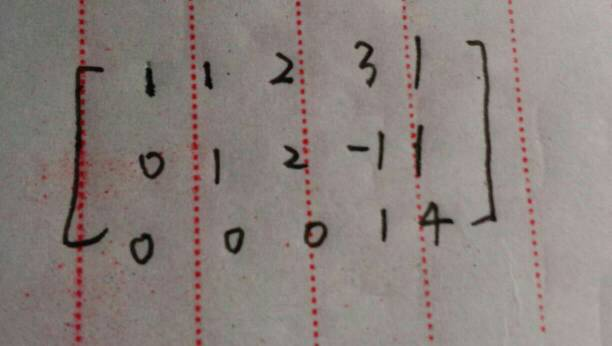 1 1 2 3 1
0 1 2 -1 1
0 0 0 1 4